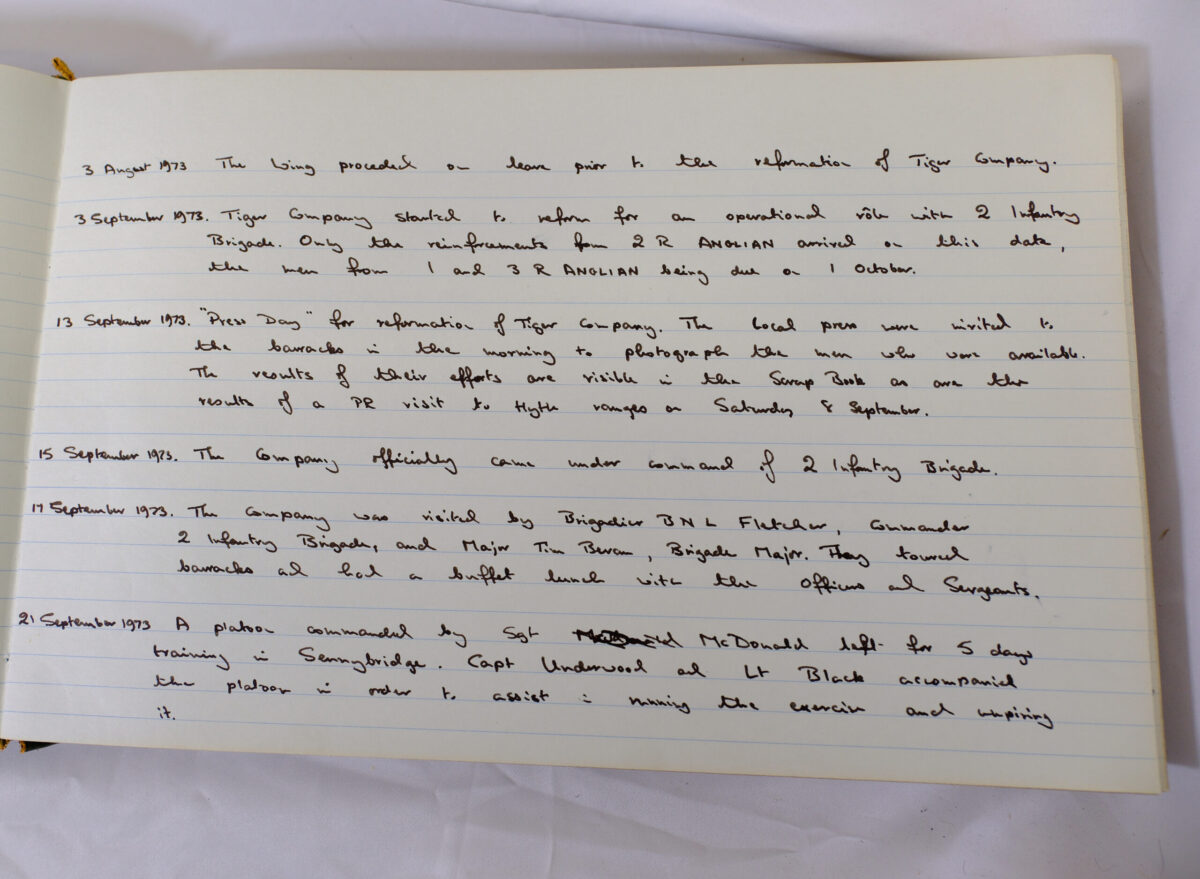 3 August 1973 The Wing proceded on leave prior to the reformation of Tiger Company.
3 September 1973. Tiger Company started to reform for an operational rôle with 2 Infantry
Brigade. Only the reinforcements from 2 R ANGLIAN arrived on this date,
the men from 1 and 3 R ANGLIAN being due on 1 October.
13 September 1973. "Press Day" for reformation of Tiger Company. The Local press were invited to
the barracks in the morning to photograph the men who were available.
The results of their efforts are visible in the Scrap Book as are the
results of a PR visit to Hythe ranges on Saturday 8 September.
15 September 1973. The Company officially came under command of 2 Infantry Brigade.
17 September 1973. The Company was visited by Brigadier B N L Fletcher, Commander
2 Infantry Brigade, and Major Tim Bevan, Brigade Major. They toured
barracks and had a buffet lunch with the Officers and Sergeants.
21 September 1973 A platoon commanded by Sgt McDonald left for 5 days
training in Sennybridge. Capt Underwood and Lt Black accompanied
the platoon in order to assist in running the exercise and umpiring
it.